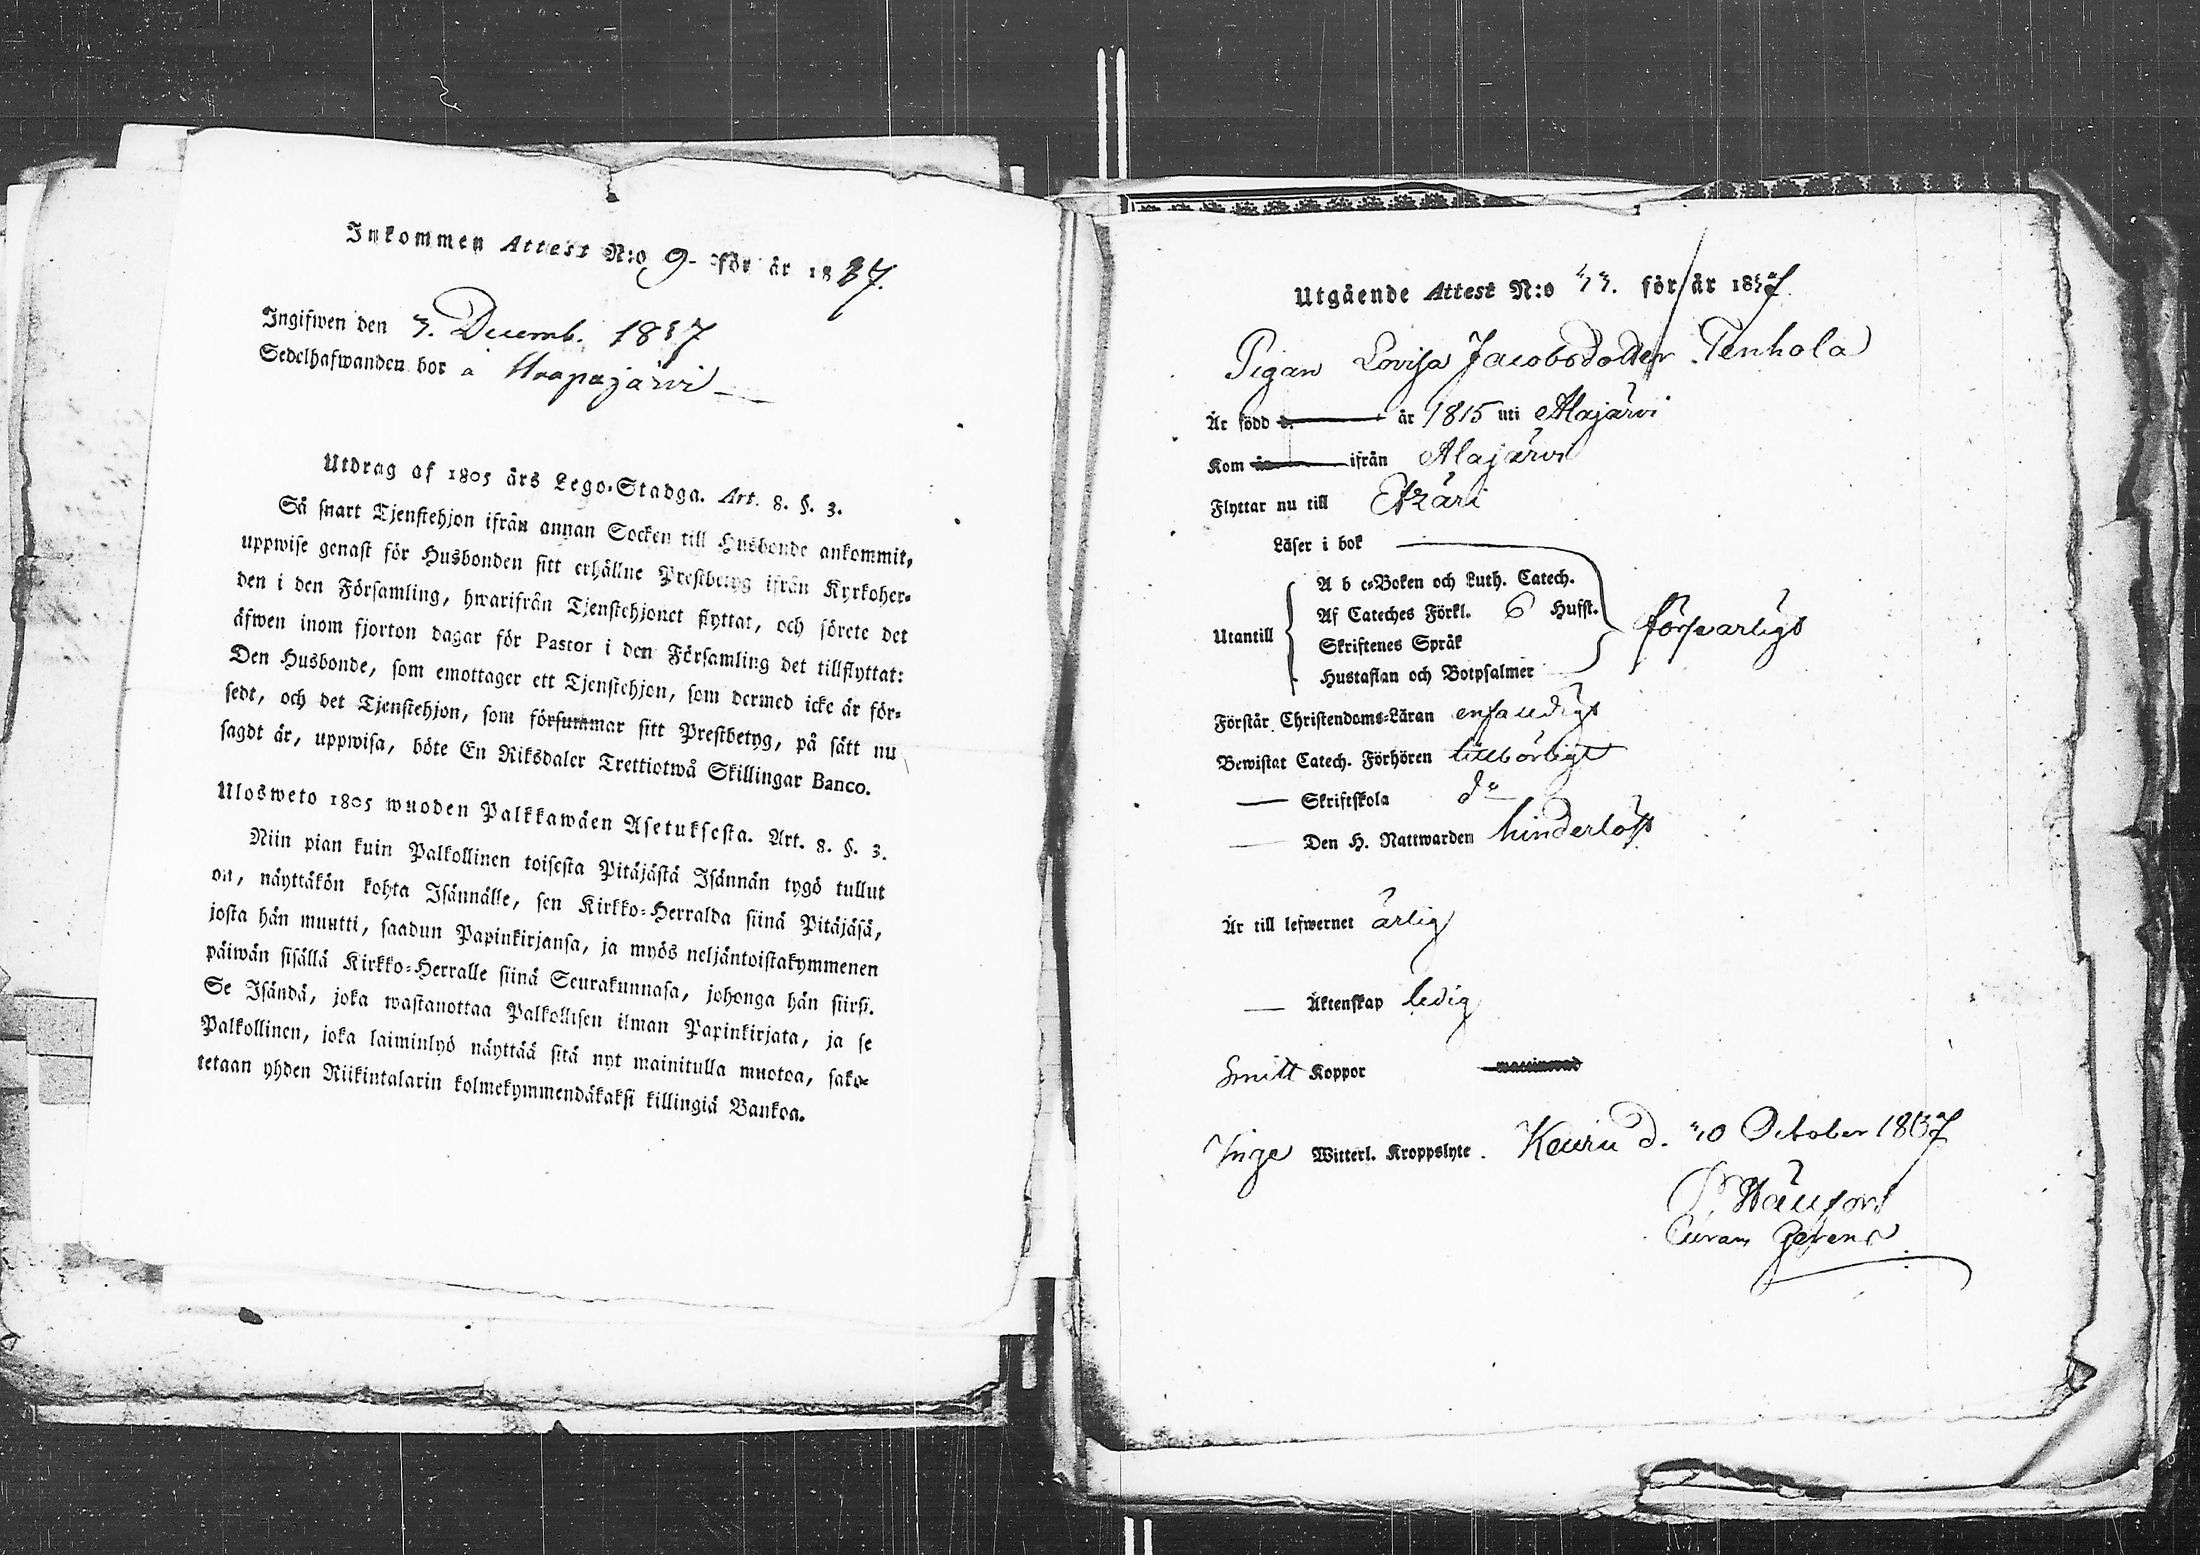 Inkommen Attest N:o 9. för år 1837.
Ingifwen den 3. Decemb. 1837
Sedelhafwanden bor å Haapajärvi
Utdrag af 1805 års Lego-Stadga. Art. 8. §. 3.
Så snart Tjenstehjon ifrån annan Socken till Husbonde ankommit,
uppwise genast för Husbonden sitt erhållne Prestbetyg ifrån Kyrkoher-
den i den Församling, hwarifrån Tjenstehjonet flyttat, och förete det
äfwen inom fjorton dagar för Pastor i den Församling det tillflyttat:
Den Husbonde, som emottager ett Tjenstehjon, som dermed icke är för-
sedt, och det Tjenstehjon, som försummar sitt Prestbetyg, på sätt nu
sagdt är, uppwisa, böte En Riksdaler Trettiotwå Skillingar Banco.
Ulosweto 1805 wuoden Palkkawäen Asetuksesta. Art. 8. §. 3.
Niin pian kuin Palkollinen toisesta Pitäjästä Isännän tygö tullut
on, näyttäkön kohta Isännälle, sen Kirkko-Herralda siinä Pitäjäsä,
josta hän muutti, saadun Papinkirjansa, ja myös neljäntoistakymmenen
päiwän sisällä Kirkko-Herralle siinä Seurakunnasa, johonga hän siirsi.
Se Isändä, joka wastanottaa Palkollisen ilman Papinkirjata, ja se
Palkollinen, joka laiminlyö näyttää sitä nyt mainitulla muotoa, sako-
tetaan yhden Riikintalarin kolmekymmendäkaksi killingiä Bankoa.
Utgående Attest N:o 33. för år 1837.
Pigan Lovisa Jacobsdotter Tenhola
Är född d. år 1815 uti Alajärvi
Kom år ifrån Alajärvi
Flyttar nu till Etzäri
Läser i bok
A b c-Boken och Luth. Catech.
Af Cateches Förkl. 6 Hufst.
Utantill Skriftenes Språk försvarligt
Hustaflan och Botpsalmer
Förstår Christendoms-Läran enfaldigt
Bewistat Catech. Förhören tillbörligt
— Skriftskola do
— Den H. Nattwarden hinderlöst
Är till lefwernet ärlig
— Äktenskap ledig
Smitt Koppor
Inge Witterl. Kroppslyte. Keuru d. 30 October 1837
Curam Gerens